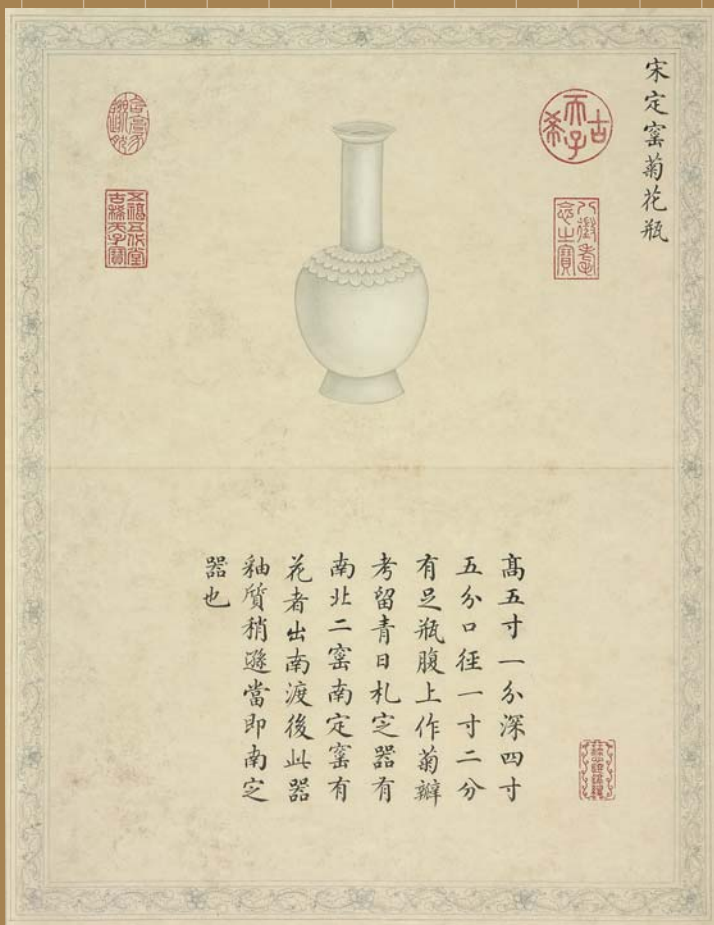 宋定窯菊花瓶
古希天子
八徵耄念之寶
五福五代堂古稀天子寶
髙五寸一分深四寸
五分口徑一寸二分
有足瓶腹上作菊瓣
考留青日札定器有
南北二窯南定窯有
花者出南渡後此器
釉質稍遜當即南定
器也